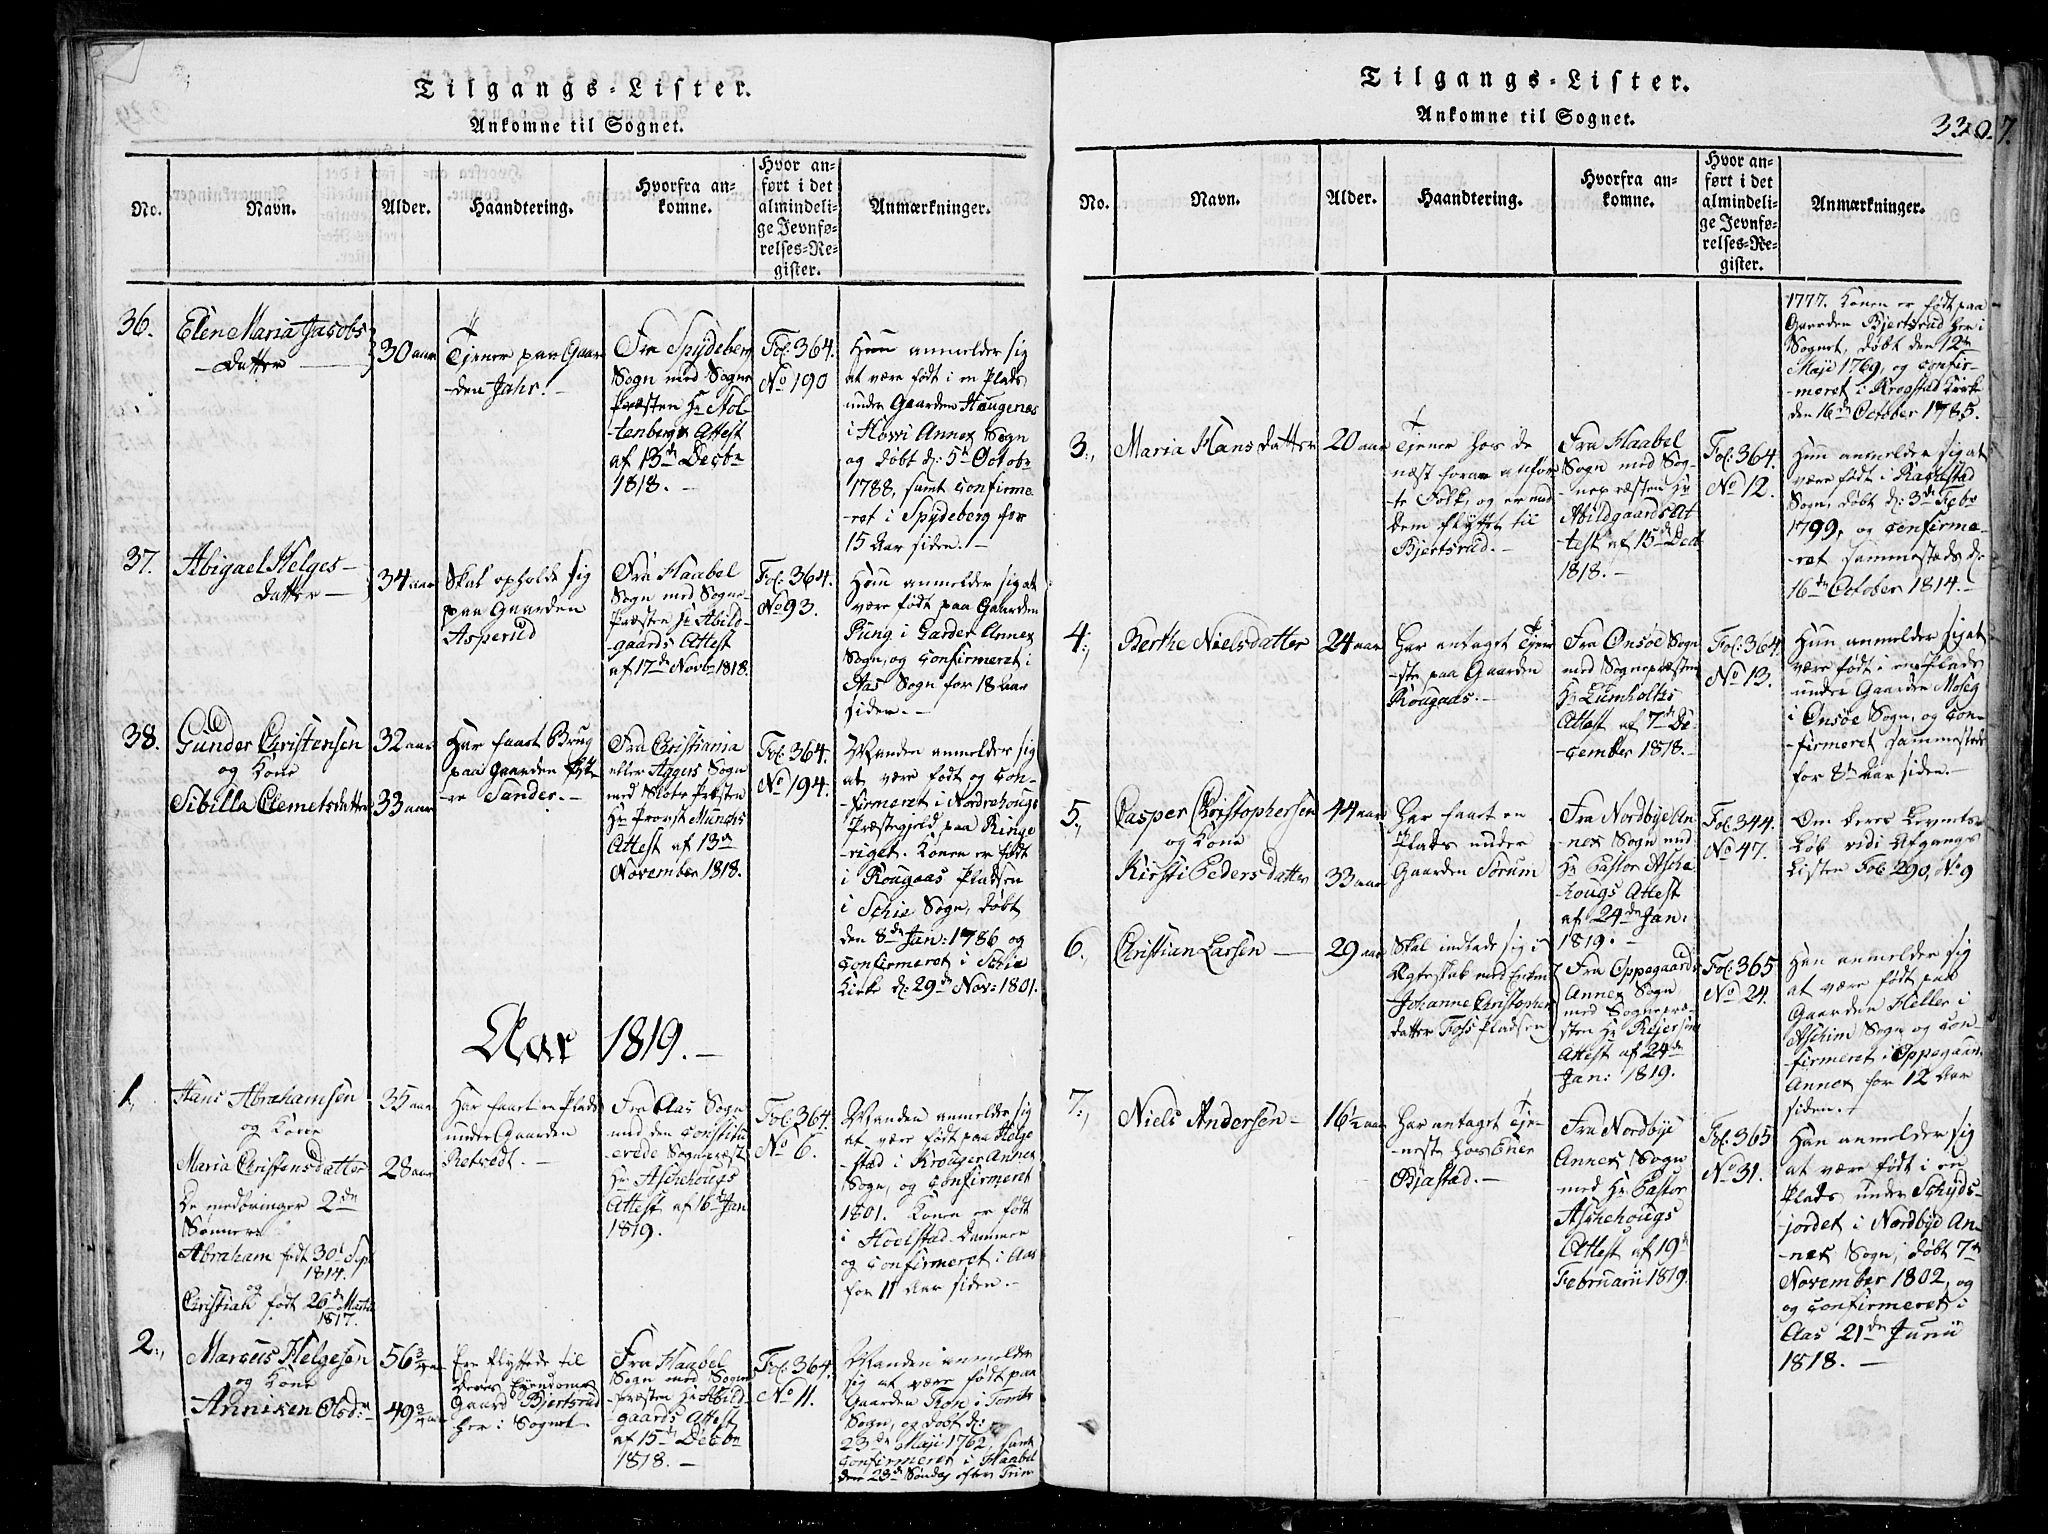 Tilgangs-Lister.
Ankomne til Sognet.
No.
Navn.
Alder.
Haandtering.
Hvorfra an-
komne.
Hvor an-
ført i det
almindeli-
ge Jevnfø-
relses-Re-
gister.
Anmærkninger.
36.
Elen Maria Jacobs
Datter
30 aar
Tjener paa Gaar
-den Jahr.
Fra Spydeberg
Sogn med Sogne
Præsten Hr Stol-
tenbergs Attest
af 13de Decbr
1818. -
Fol: 364.
No 190
Hun anmelder sig
at være født i en Plads
under Gaarden Haugenæs
i Hovvi Annex Sogn
og døbt d: 5te Octobr
1788, samt confirme
ret i Spydeberg for
15 Aar siden. -
37.
Abigael Helges-
Datter
34 aar
Skal opholde sig
paa Gaarden
Asperud
Fra Haabel
Sogn med Sogne-
Præsten Hr Abild-
gaards Attest
af 17de Novbr 1818.
Fol: 364.
No 93.
Hun anmelder sig at
være født paa Gaarden
Pung i Garder Annex
Sogn, og confirmeret i
Aas Sogn for 18 Aar
siden. -
38.
Gunder Christensen
og Kone
Sibilla Clemetsdatter
32 aar
33 aar
Har faaet Brug
paa Gaarden
Sander. -
Fra Christiania
eller Aggers Sogn
med Slots Præsten
Hr Provst Munchs
Attest af 13de
November 1818.
Fol: 364.
No 194.
Manden anmelder sig
at være født og con-
firmeret i Nordrehougs
Præstegjeld paa Ringe
-riget. Konen er født
i Kougaas Pladsen
i Schie Sogn, døbt
den 8de Jan: 1786 og
confirmeret i Schie
Kirke d: 29de Nov: 1801.
Aar 1819. -
1.
Hans Abrahamsen
og Kone
Maria Christensdatter
De medbringer 2de
Sønner
Abraham født 30te Sep
1814.
og
Christian født 26de Martii
1817.
35 aar
28 aar
Har faaet en Plads
under Gaarden
Retvedt. -
Fra Aas Sogn
med den constitu
erede Sognepræst
Hr Aschehougs
Attest af 16de Jan
1819.
Fol: 364.
No 6.
Manden anmelder sig
at være født paa Helge
stad i Kroger Annex
Sogn, og confirmeret
1801. Konen er født
i Hoelstad-Dammen
og confirmeret i Aas
for 11 Aar siden. -
2.,
Marcus Helgesen
og Kone
Anniken Olsdr
56 3/4 aar
49 3/4 aar
Ere flyttede til
deres Eyendoms
Gaard Bjertsrud
her i Sognet.
Fra Haabel
Sogn med Sogne
præsten Hr Abild-
gaards Attest
af 15de Decbr
1818. -
Fol: 364.
No 11.
Manden anmelder
sig at være født paa
Gaarden Tron i Tomter
Sogn, og døbt d:
23de Maji 1762, samt
confirmeret i Haabel
den 23de Søndag efter Trin:
Tilgangs-Lister.
Ankomne til Sognet.
330.
7.
No.
Navn.
Alder.
Haandtering.
Hvorfra an-
komne.
Hvor an-
ført i det
almindeli-
ge Jevnfø-
relses-Re-
gister.
Anmærkninger.
1777. Konen er født paa
Gaarden Bjertsrud her i
Sognet, døbt den 12te
Maji 1769, og confir-
meret i Krogstad Kirke
den 16de October 1785.
3.,
Maria Hansdatter
20 aar
Tjener hos de
næst foran anfør
-te Folk, og er med
dem flyttet til
Bjertsrud. -
Fra Haabel
Sogn med Sog-
nepræsten Hr
Abildgaards At
test af 15de Dec
1818. -
Fol: 364.
No 12.
Hun anmelder sig at
være født i Rakkestad
Sogn, døbt d: 3de Febr
1799, og confirme-
ret sammesteds d:
16de October 1814. -
4.,
Berthe Nielsdatter
24 aar
Har antaget Tjene
-ste paa Gaarden
Kougaas. -
Fra Onsøe Sogn
med Sognepræsten
Hr Lumholtes
Attest af 7de De-
cember 1818. -
Fol: 364
No 13.
Hun anmelder sig at
være født i en Plads
under Gaarden Moseg
i Onsøe Sogn, og con-
firmeret sammesteds
for 8te Aar siden. -
5.,
Casper Christophersen
og Kone
Kirsti Pedersdatter
44 aar
33 aar
Har faaet en
Plads under
Gaarden Sorum
Fra Nordbye An-
nex Sogn med
Hr Pastor Asche
hougs Attest
af 24de Jan:
1819. -
Fol: 344.
No 47.
Om deres Levnets-
Løb vidi Afgangs
Listen Fol: 290, No 9
6.,
Christian Larsen
29 aar
Skal indlade sig i
Ægteskab med Enken
Johanne Christopher
datter Foss Pladsen
Fra Oppegaards
Annex Sogn
med Sognepræ-
sten Hr Rejersens
Attest af 24de
Jan: 1819.
Fol: 365
No 24.
Han anmelder sig
at være født paa
Gaarden Heller i
Aschim Sogn og con-
firmeret i Oppegaard
Annex for 12 Aar
siden. -
7.,
Niels Andersen
16 1/2 aar
Har antaget Tje-
neste hos Ener
Bjastad. -
Fra Nordbye
Annex Sogn
med Hr Pastor
Aschehougs
Attest af 19de
Februarii 1819.
Fol: 365
No 31.
Han anmelder sig
at være født i en
Plads under Schyds-
jordet i Nordbye An-
nex Sogn, døbt 7de
November 1802, og
og confirmeret i
Aas 21de Junii
1818. -